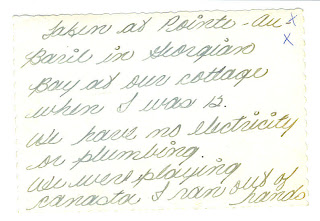 Taken at Pointe-au x
Baril in Georgian x
Bay at our cottage
when I was 13.
We have no electricity
or plumbing.
We were playing
canasta I ran out of
hands